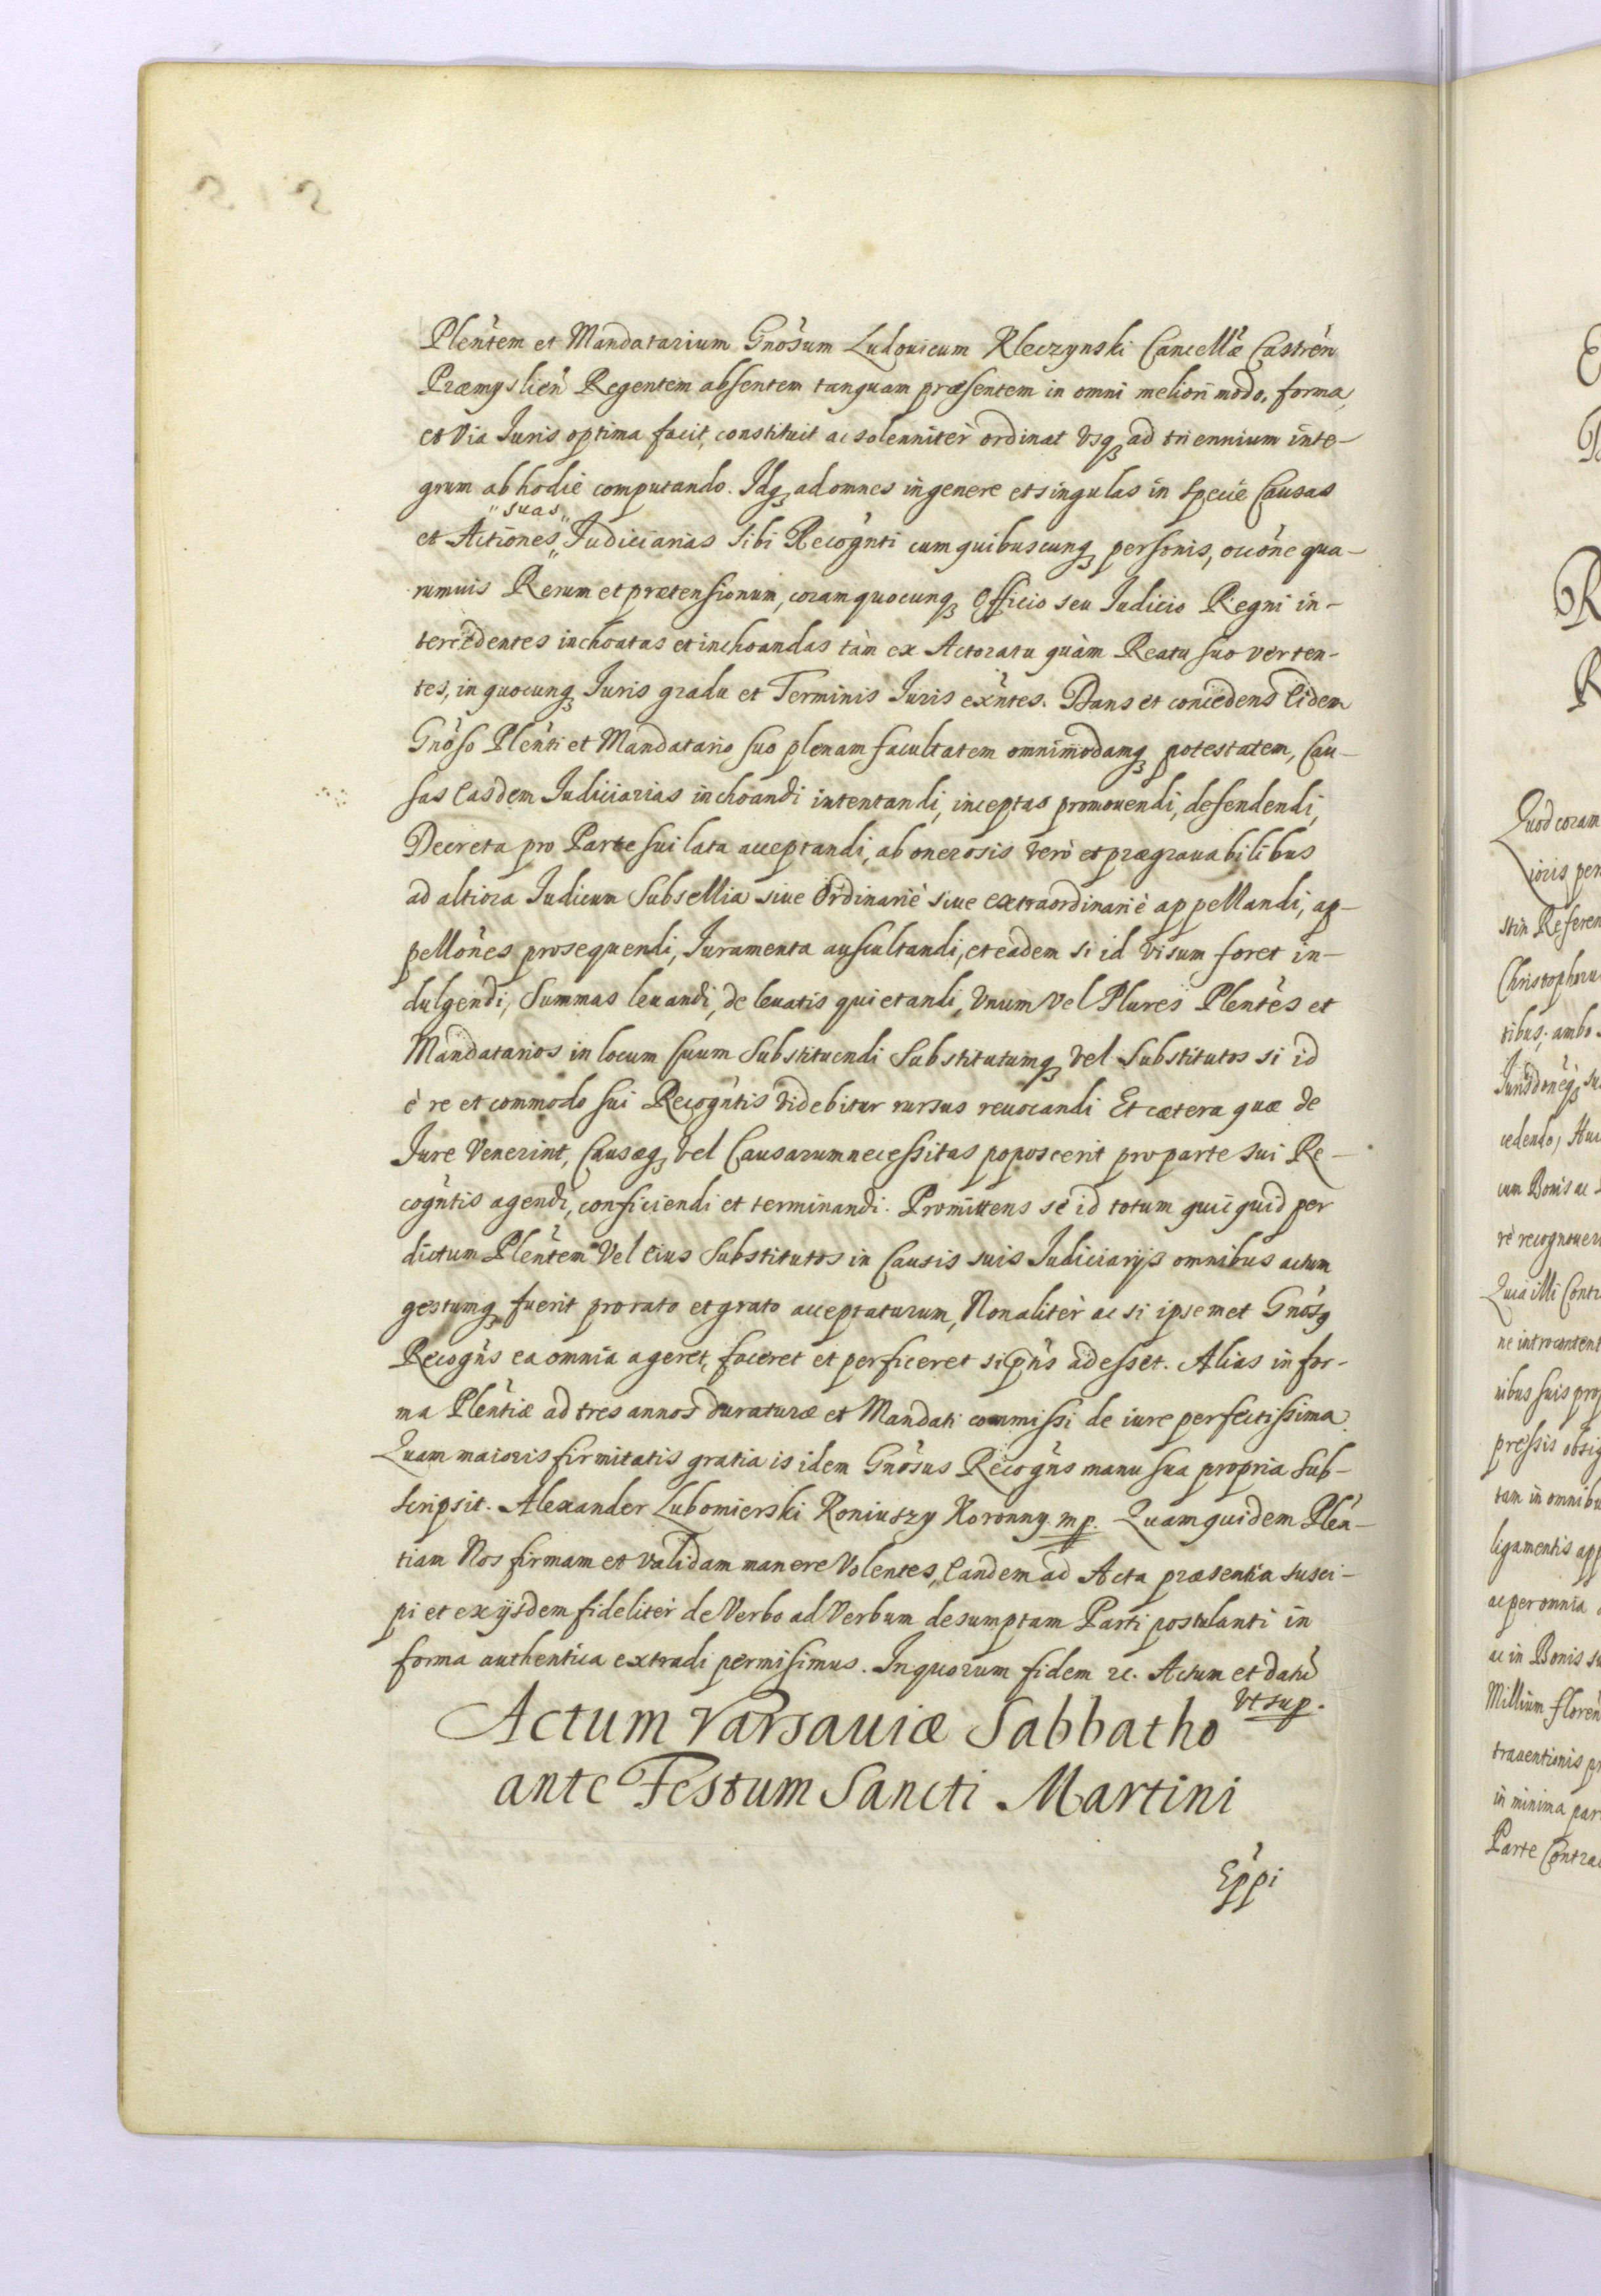 Plen̄tem et Mandatarium Gnōsum Ludouicum Kleczynski Cancellæ Castren̄
Præmyslien̄ Regentem absentem tanquam præsentem in omni meliori modo, forma,
et Via Iuris optima facit, constituit ac solenniter ordinat Vsq₃ ad triennium inte-
grum ab hodie computando. Idq₃ ad omnes in genere et singulas in specie Causas
et Actiones „suas„ Iudiciarias sibi Recogn̄ti cum quibuscunq₃ personis, occōne qua-
rumuis Rerum et prætensionum, coram quocunq₃ Officio seu Iudicio Regni in-
tercedentes inchoatas et inchoandas tàm ex Actoratu quàm Reatu suo verten-
tes, in quocunq₃ Iuris gradu et Terminis Iuris exn̄tes. Dans et concedens Eidem
Gnōso Plen̄ti et Mandatario suo plenam facultatem omnimodamq₃ potestatem, Cau-
sas Easdem Iudiciarias inchoandi intentandi, inceptas promouendi, defendendi,
Decreta pro Parte sui lata acceptandi, ab onerosis verò et prægrauabilibus
ad altiora Iudicum Subsellia siue Ordinariè siue extraordinariè appellandi, ap-
pellōnes prosequendi, Iuramenta auscultandi, et eadem si id visum foret in-
dulgendi, Summas leuandi, de leuatis quietandi, Vnum Vel Plures Plen̄tes et
Mandatarios in locum suum Substituendi Substitutumq₃ vel Substitutos si id
è re et commodo sui Recogn̄tis videbitur rursus reuocandi Et cætera quæ de
Iure Venerint, Causæq₃ vel Causarum necessitas poposcerit pro parte sui Re-
cogn̄tis agendi, conficiendi et terminandi. Promittens se id totum quicquid per
dictum Plen̄tem Vel Eius Substitutos in Causis suis Iudiciarijs omnibus actum
gestumq₃ fuerit pro rato et grato acceptaturum, Non aliter ac si ipsemet Gnōsq
Recogn̄s ea omnia ageret, faceret et perficeret si pn̄s adesset. Alias in for-
ma Plen̄tiæ ad tres annos duraturæ et Mandati commissi de iure perfectissima.
Quam maioris firmitatis gratia is idem Gnōsus Recogn̄s manu sua propria Sub-
scripsit. Alexander Lubomierski Koniuszy Koronny. mp. Quam quidem Plen̄-
tiam Nos firmam et validam manere Volentes, Eandem ad Acta præsentia susci-
pi et ex ijsdem fideliter de Verbo ad Verbum desumptam Parti postulanti in
forma authentica extradi permisimus. In quorum fidem &c. Actum et datū
Vt sup.
Actum Varsauiæ Sabbatho
ante Festum Sancti Martini
Ep̄pi
Quod coram
stin Referen
Christophoru
tibus, ambo
cedendo, Huc
cum Bonis ac
Quia illi Contr
pressis obsig
tam in omnibu
ligamentis app
ac per omnia
ac in Bonis su
Millium floren̄
in minima par
Parte Contra